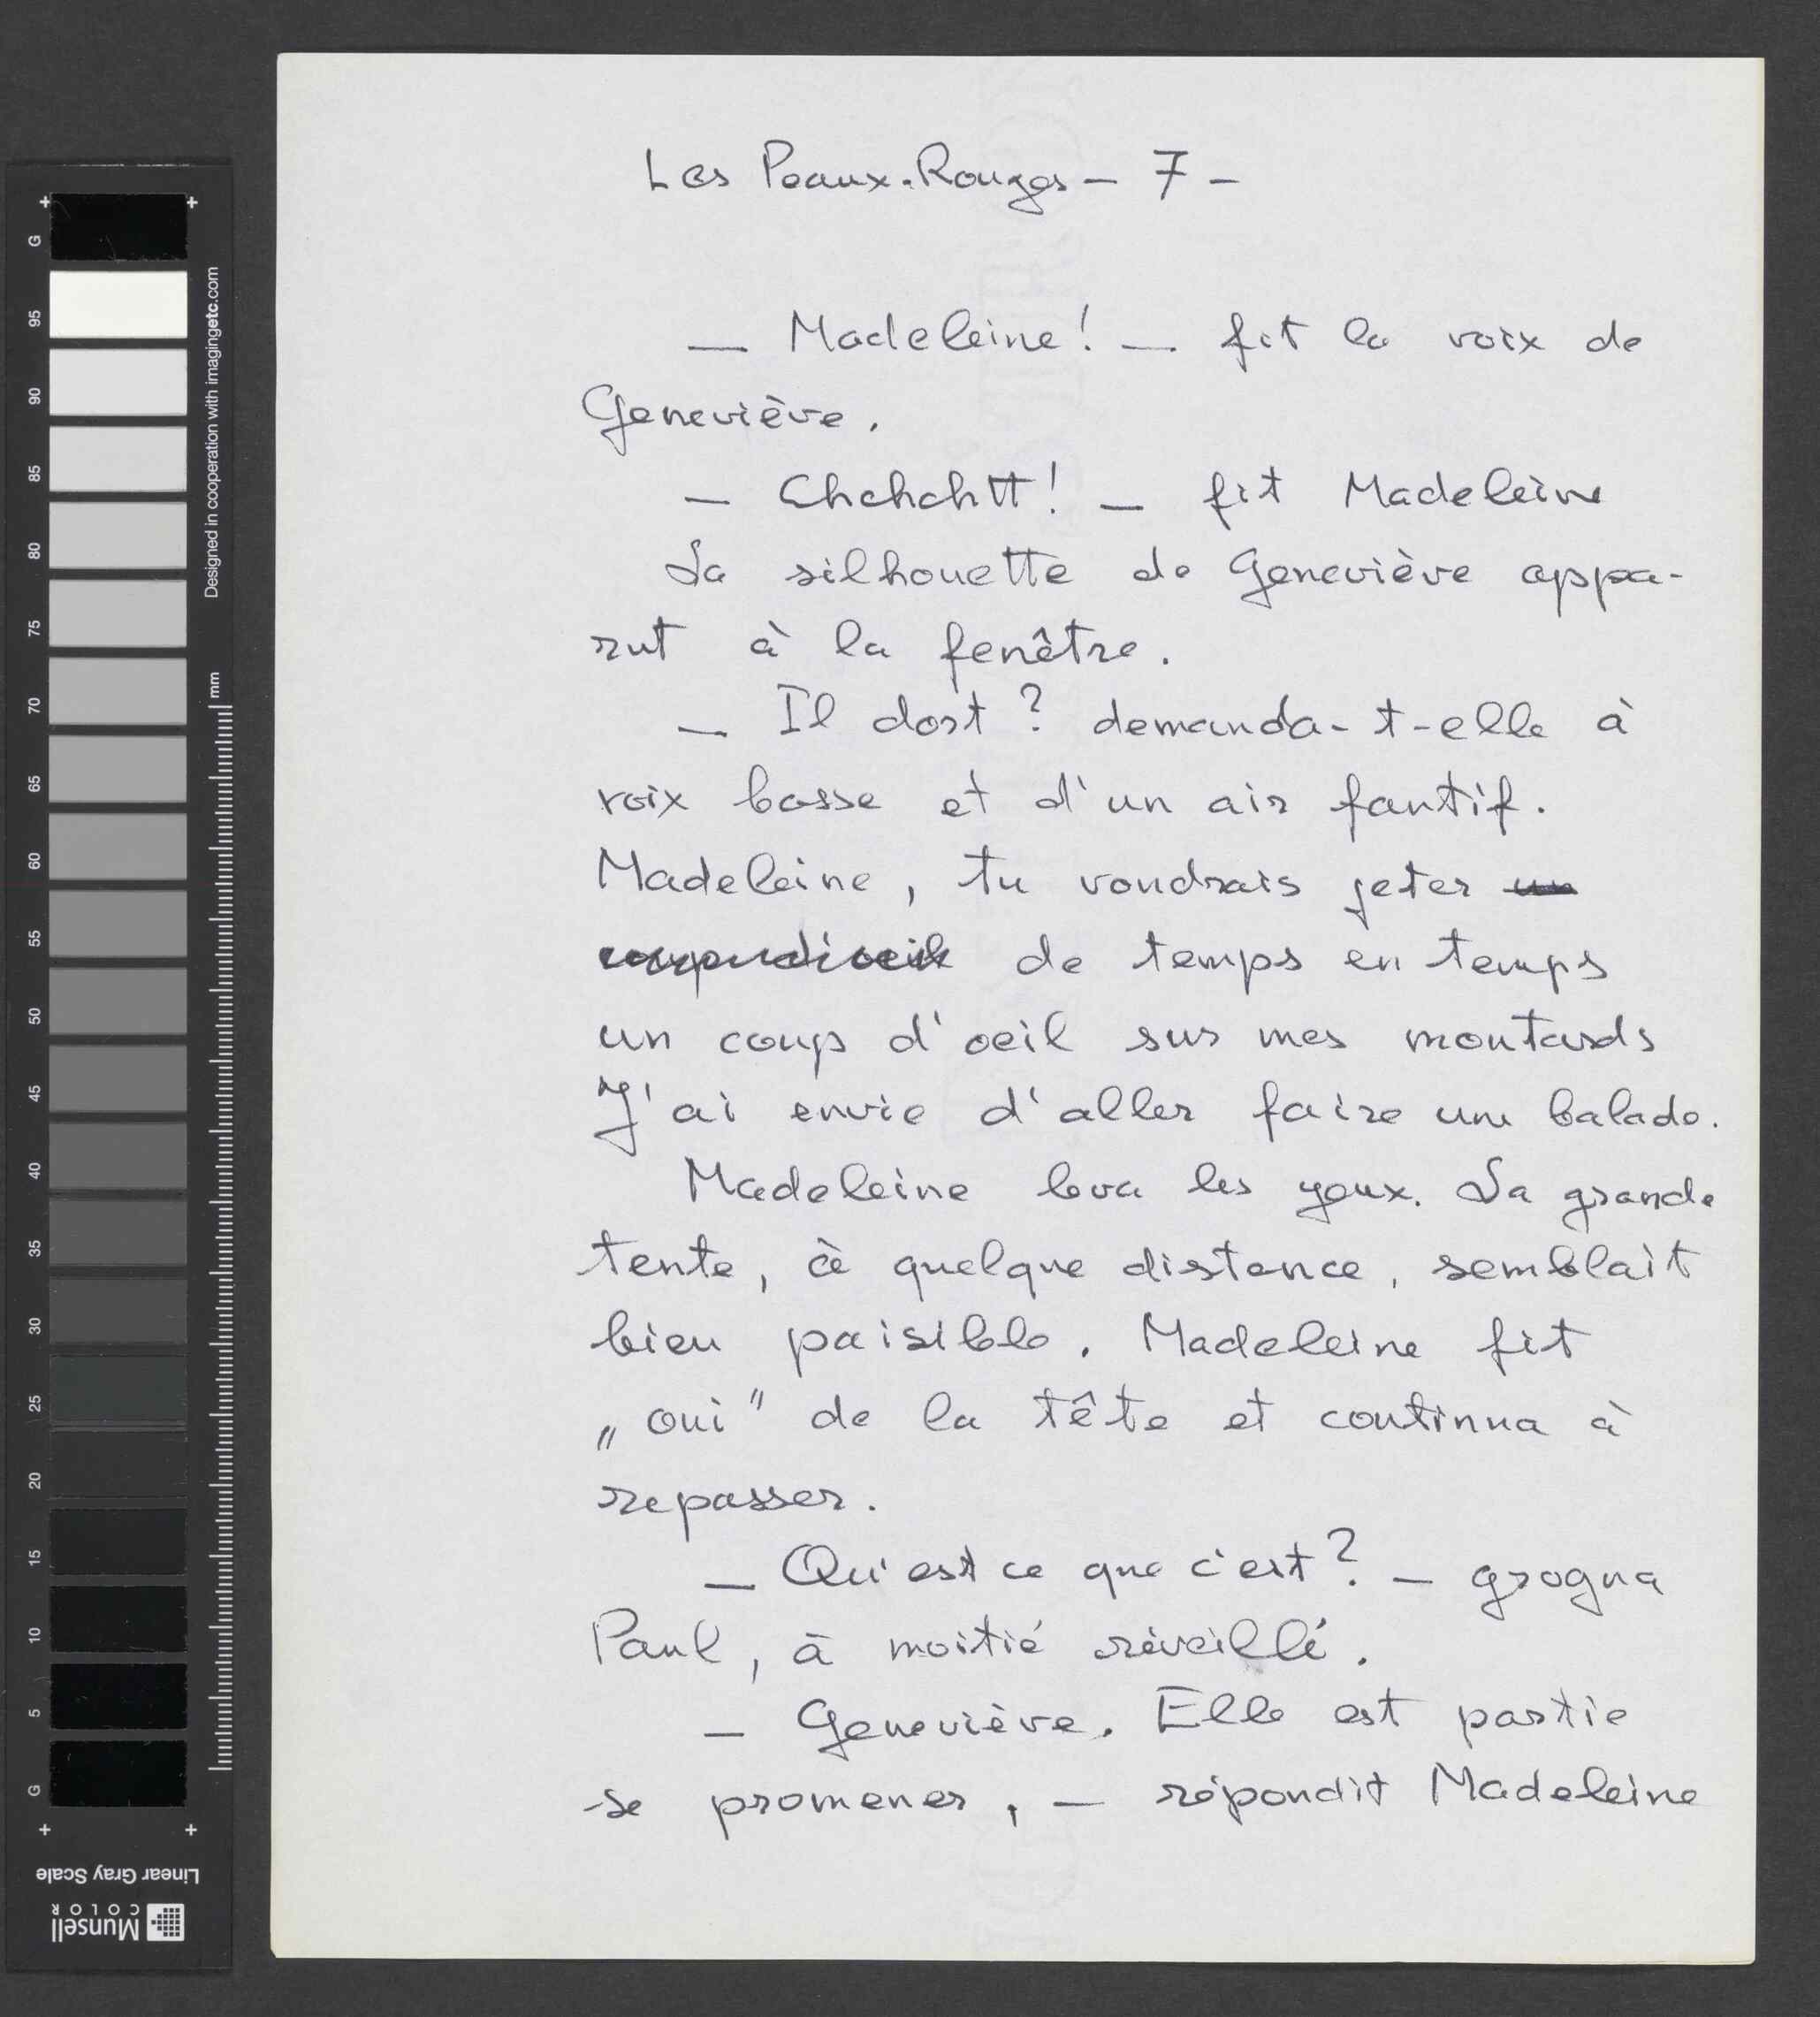 Les Peaux-Rouges – 7 –
— Madeleine! — fit la voix de
Geneviève.
— Chchchtt! — fit Madeleine
La silhouette de Geneviève appa-
rut à la fenêtre.
— Il dort? demanda-t-elle à
voix basse et d'un air fautif.
Madeleine, tu voudrais jeter un
coup d'oeil de temps en temps
un coup d'oeil sur mes moutards
J'ai envie d'aller faire une balade.
Madeleine leva les yeux. La grande
tente, à quelque distance, semblait
bien paisible. Madeleine fit
„oui" de la tête et continua à
repasser.
— Qu'est ce que c'est? — grogna
Paul, à moitié réveillé.
— Geneviève. Elle est partie
se promener, — répondit Madeleine
G
95
90
85
80
75
70
65
60
55
50
45
40
35
30
25
20
15
10
5
G
Designed in cooperation with imagingetc.com
mm
Linear Gray Scale
Munsell
COLOR